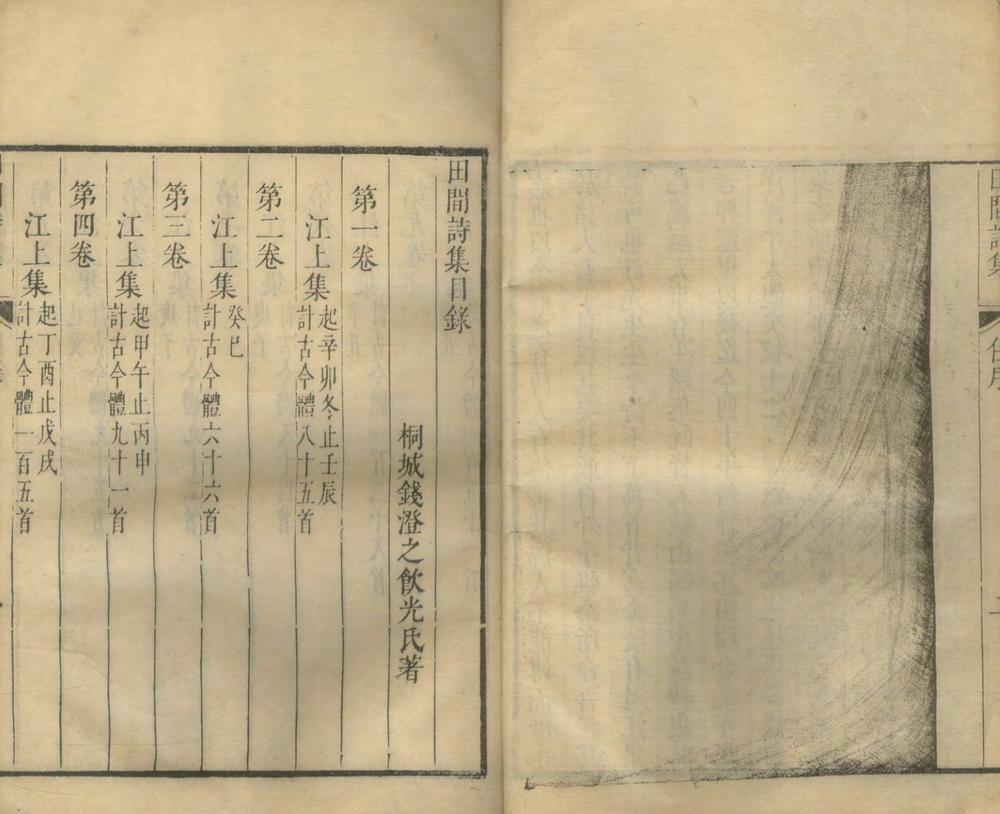 田間詩集
田間詩集目錄
桐城錢澄之飲光氏著
第一卷
江上集
起辛卯冬止壬辰
計古今體八十五首
第二卷
江上集
癸巳
計古今體六十六首
第三卷
江上集
起甲午止丙申
計古今體九十一首
第四卷
江上集
起丁酉止戊戌
計古今體一百五首